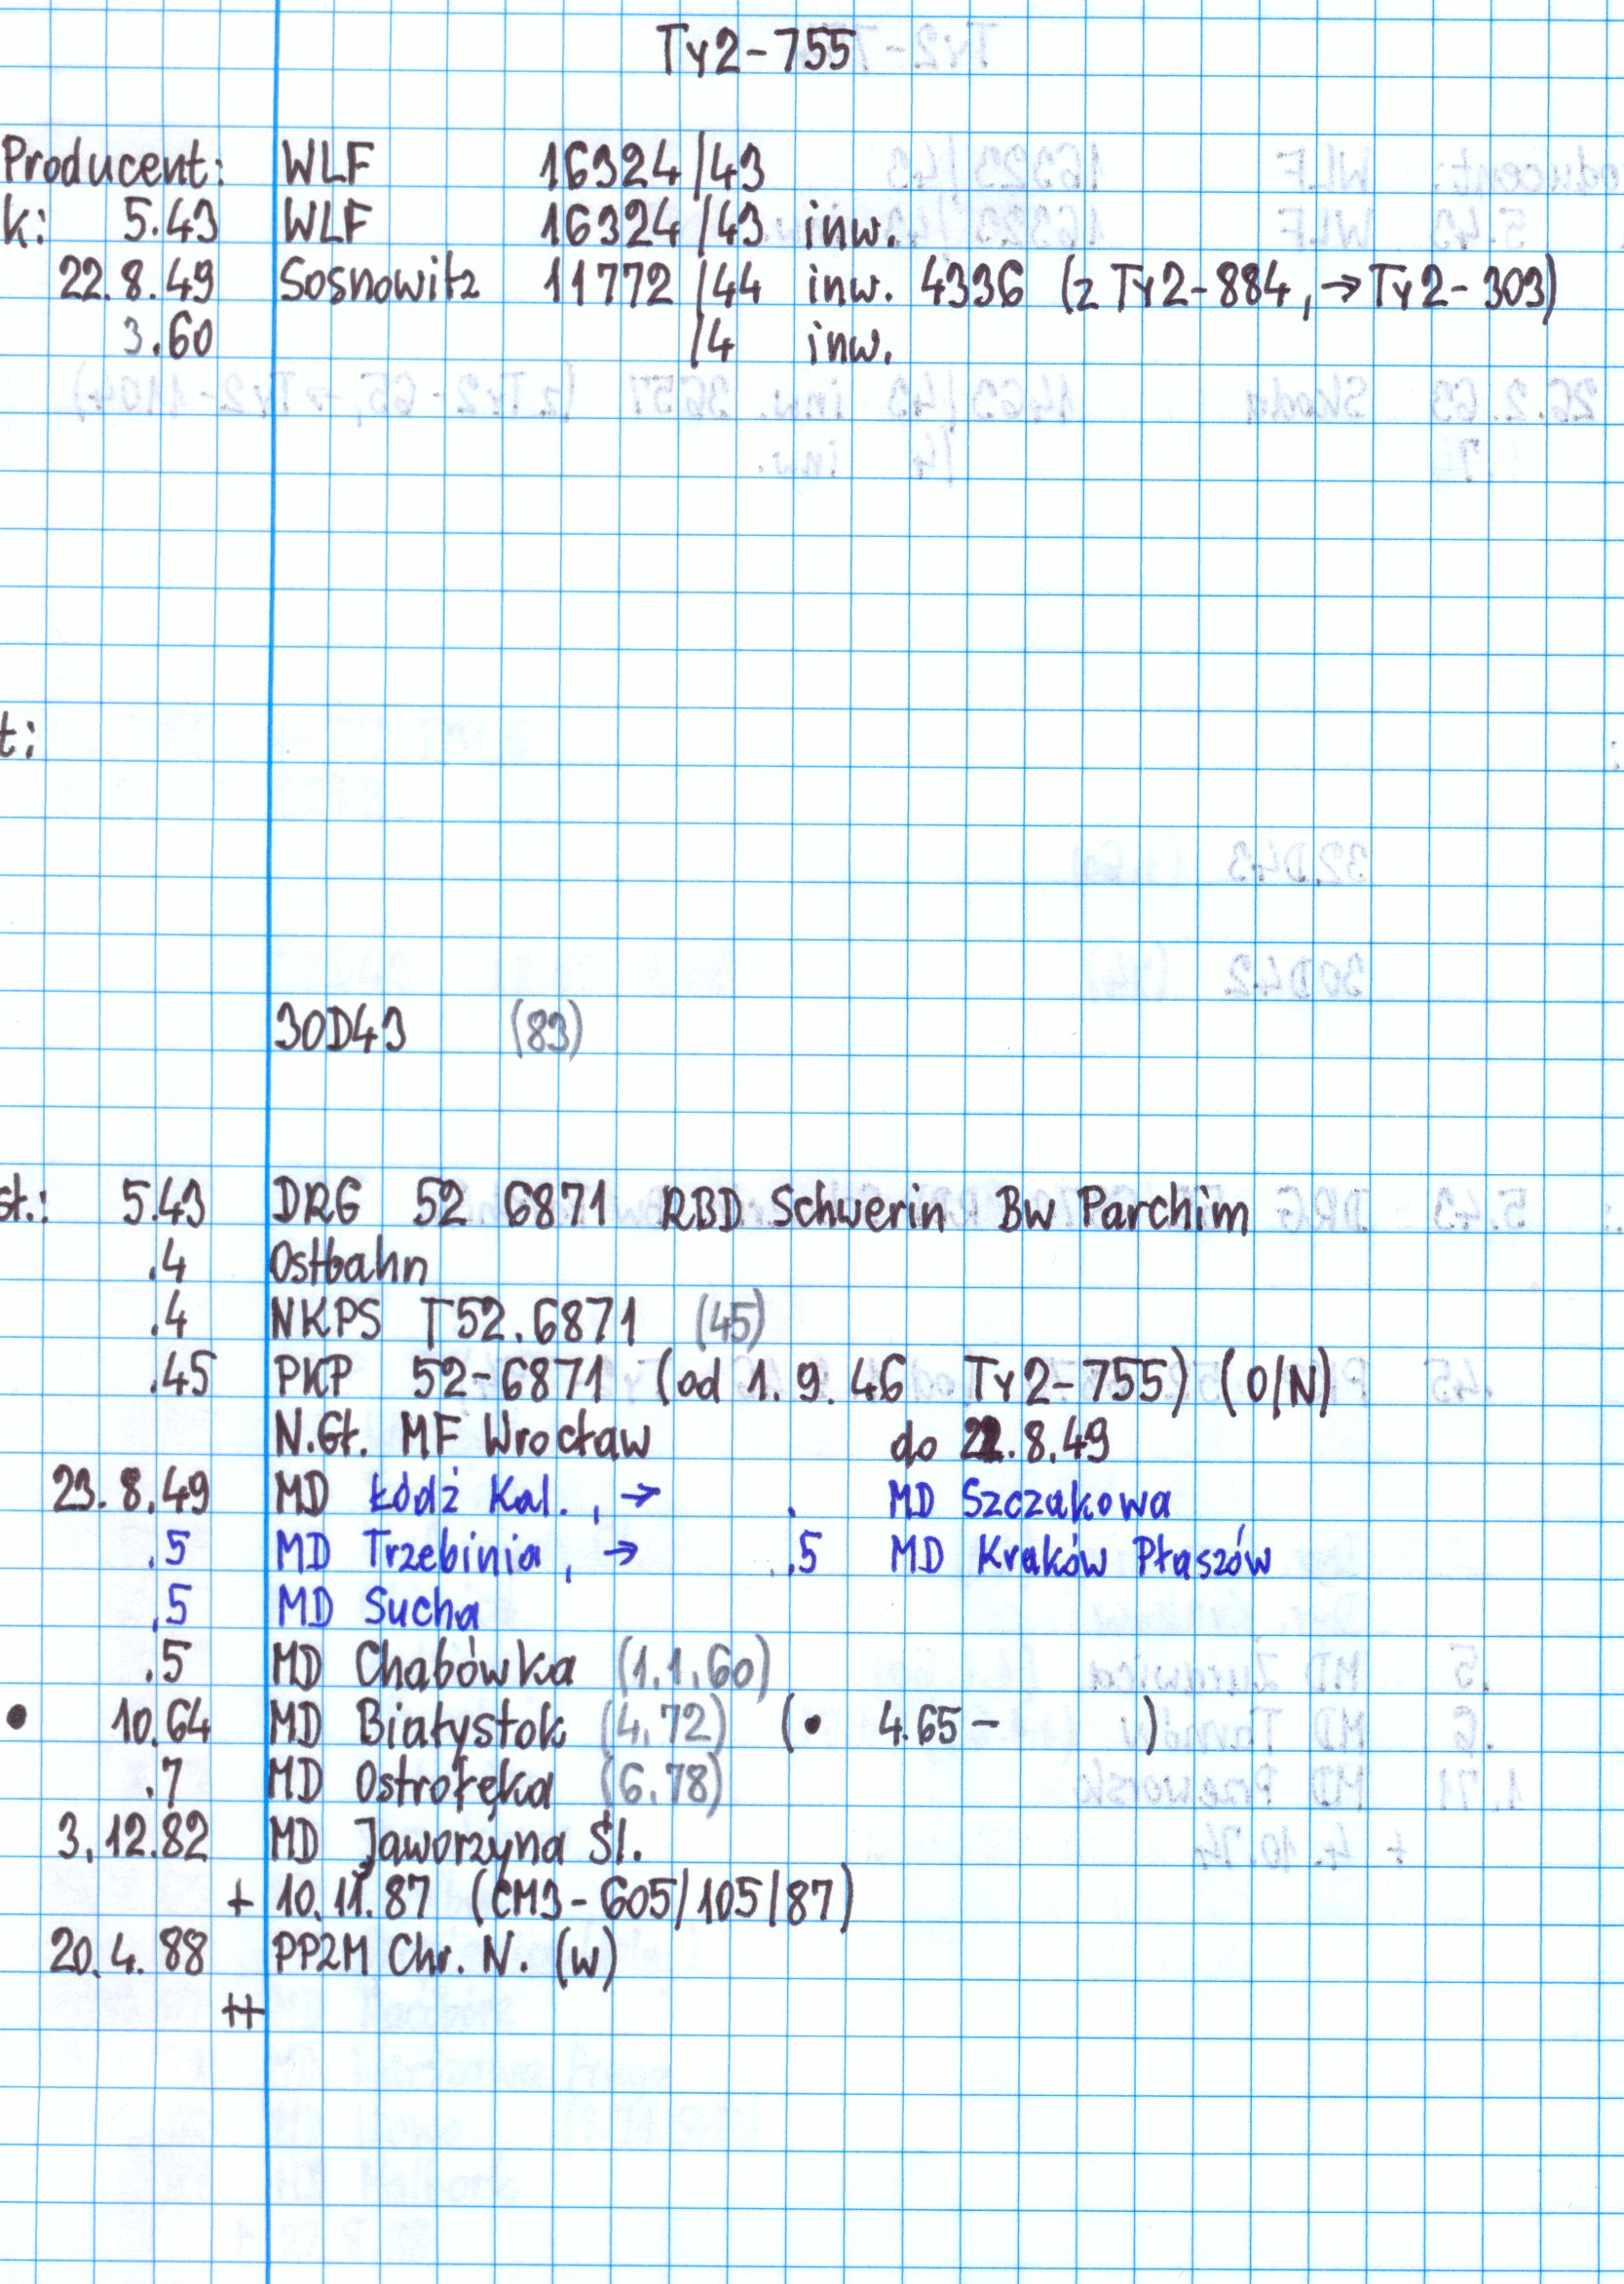 Ty2-755
Producent: WLF 16324/43
k: 5.43 WLF 16324/43 inw.
22.8.49 Sosnowitz 11772/44 inw. 4336 (z Ty2-884, → Ty2-303)
3.60 /4 inw.
t:
30D43 (83)
st.: 5.43 DRG 52 6871 RBD Schwerin Bw Parchim
.4 Ostbahn
.4 NKPS T52.6871 (45)
.45 PKP 52-6871 (od 1.9.46 Ty2-755) (O/N)
N.Gł. MF Wrocław do 22.8.49
23.8.49 MD Łódź Kal., → . MD Szczakowa
.5 MD Trzebinia, → .5 MD Kraków Płaszów
.5 MD Sucha
.5 MD Chabówka (1.1.60)
• 10.64 MD Białystok (4.72) (• 4.65- )
.7 MD Ostrołęka (6.78)
3.12.82 MD Jaworzyna Śl.
+ 10.11.87 (CM3-605/105/87)
20.4.88 PP2M Chr. N. (w)
++